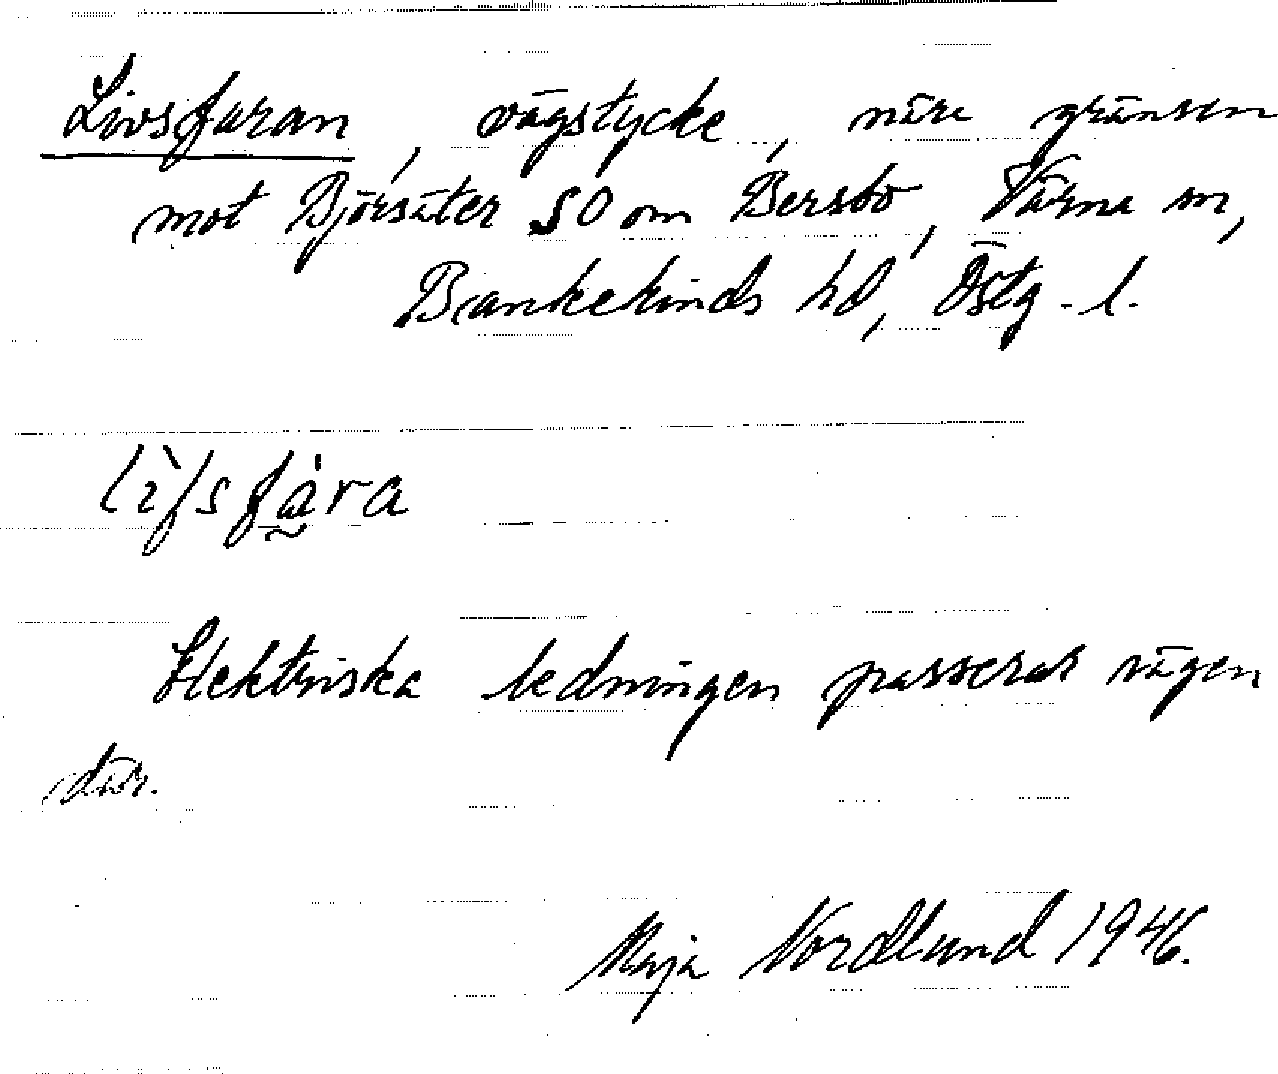 Livsfaran, vägstycke, nära gränsen
mot Björsäter SO om Bersbo, Värna sn,
Bankekinds hd, Östg. l.
lìfsfára
Elektriska ledningen passerar vägen
där.
Maja Nordlund 1946.